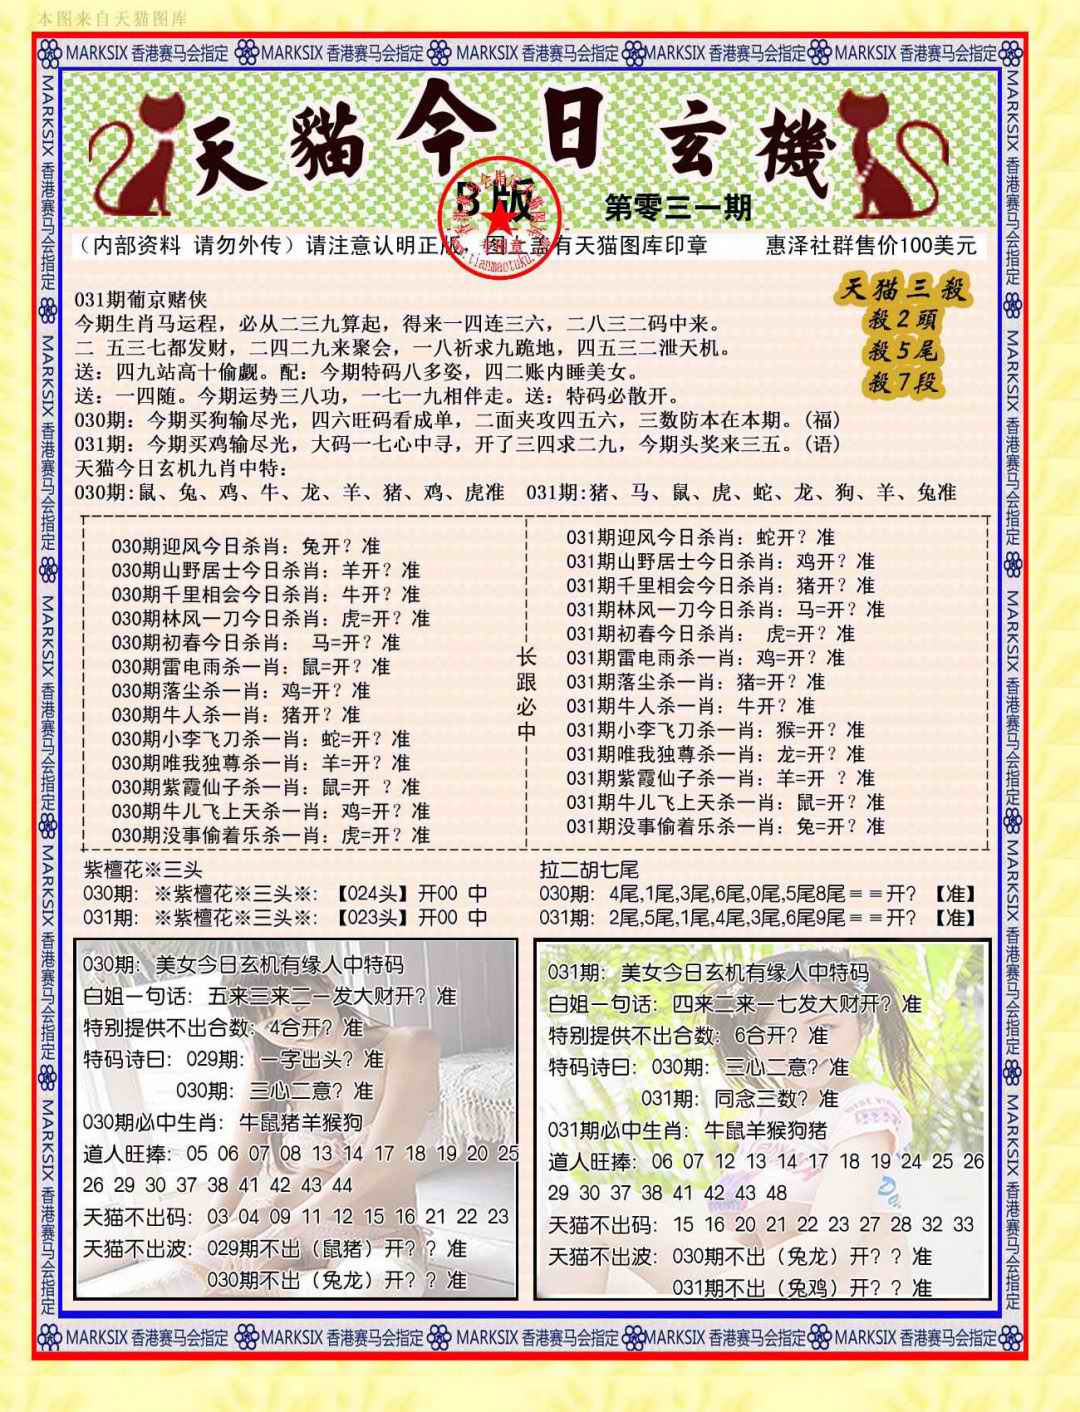 本图来自天猫图库
MARKSIX 香港赛马会指定 MARKSIX 香港赛马会指定 MARKSIX 香港赛马会指定 MARKSIX 香港赛马会指定 MARKSIX 香港赛马会指定
MARKSIX 香港赛马会指定 MARKSIX 香港赛马会指定 MARKSIX 香港赛马会指定 MARKSIX 香港赛马会指定 MARKSIX 香港赛马会指定
MARKSIX 香港赛马会指定 MARKSIX 香港赛马会指定 MARKSIX 香港赛马会指定 MARKSIX 香港赛马会指定 MARKSIX 香港赛马会指定
天貓今日玄機
B版
第零三一期
（内部资料 请勿外传）请注意认明正版，图 盖有天猫图库印章 惠泽社群售价100美元
天猫三殺
殺2頭
殺5尾
殺7段
031期葡京赌侠
今期生肖马运程，必从二三九算起，得来一四连三六，二八三二码中来。
二 五三七都发财，二四二九来聚会，一八祈求九跪地，四五三二泄天机。
送：四九站高十偷觑。配：今期特码八多姿，四二账内睡美女。
送：一四随。今期运势三八功，一七一九相伴走。送：特码必散开。
030期：今期买狗输尽光，四六旺码看成单，二面夹攻四五六，三数防本在本期。(福)
031期：今期买鸡输尽光，大码一七心中寻，开了三四求二九，今期头奖来三五。(语)
天猫今日玄机九肖中特：
030期:鼠、兔、鸡、牛、龙、羊、猪、鸡、虎准 031期:猪、马、鼠、虎、蛇、龙、狗、羊、兔准
030期迎风今日杀肖：兔开？准
030期山野居士今日杀肖：羊开？准
030期千里相会今日杀肖：牛开？准
030期林风一刀今日杀肖：虎=开？准
030期初春今日杀肖： 马=开？准
030期雷电雨杀一肖：鼠=开？准
030期落尘杀一肖：鸡=开？准
030期牛人杀一肖：猪开？准
030期小李飞刀杀一肖：蛇=开？准
030期唯我独尊杀一肖：羊=开？准
030期紫霞仙子杀一肖：鼠=开 ？准
030期牛儿飞上天杀一肖：鸡=开？准
030期没事偷着乐杀一肖：虎=开？准
长跟必中
031期迎风今日杀肖：蛇开？准
031期山野居士今日杀肖：鸡开？准
031期千里相会今日杀肖：猪开？准
031期林风一刀今日杀肖：马=开？准
031期初春今日杀肖： 虎=开？准
031期雷电雨杀一肖：鸡=开？准
031期落尘杀一肖：猪=开？准
031期牛人杀一肖：牛开？准
031期小李飞刀杀一肖：猴=开？准
031期唯我独尊杀一肖：龙=开？准
031期紫霞仙子杀一肖：羊=开 ？准
031期牛儿飞上天杀一肖：鼠=开？准
031期没事偷着乐杀一肖：兔=开？准
紫檀花※三头
030期：※紫檀花※三头※:【024头】开00 中
031期：※紫檀花※三头※:【023头】开00 中
拉二胡七尾
030期：4尾,1尾,3尾,6尾,0尾,5尾8尾＝＝开？【准】
031期：2尾,5尾,1尾,4尾,3尾,6尾9尾＝＝开？【准】
030期：美女今日玄机有缘人中特码
白姐一句话：五来三来二一发大财开？准
特别提供不出合数：4合开？准
特码诗曰：029期：一字出头？准
030期：三心二意？准
030期必中生肖：牛鼠猪羊猴狗
道人旺捧：05 06 07 08 13 14 17 18 19 20 25
26 29 30 37 38 41 42 43 44
天猫不出码：03 04 09 11 12 15 16 21 22 23
天猫不出波：029期不出（鼠猪）开？？准
030期不出（兔龙）开？？准
031期：美女今日玄机有缘人中特码
白姐一句话：四来二来一七发大财开？准
特别提供不出合数：6合开？准
特码诗曰：030期：三心二意？准
031期：同念三数？准
031期必中生肖：牛鼠羊猴狗猪
道人旺捧：06 07 12 13 14 17 18 19 24 25 26
29 30 37 38 41 42 43 48
天猫不出码：15 16 20 21 22 23 27 28 32 33
天猫不出波：030期不出（兔龙）开？？准
031期不出（兔鸡）开？？准
MARKSIX 香港赛马会指定 MARKSIX 香港赛马会指定 MARKSIX 香港赛马会指定 MARKSIX 香港赛马会指定 MARKSIX 香港赛马会指定